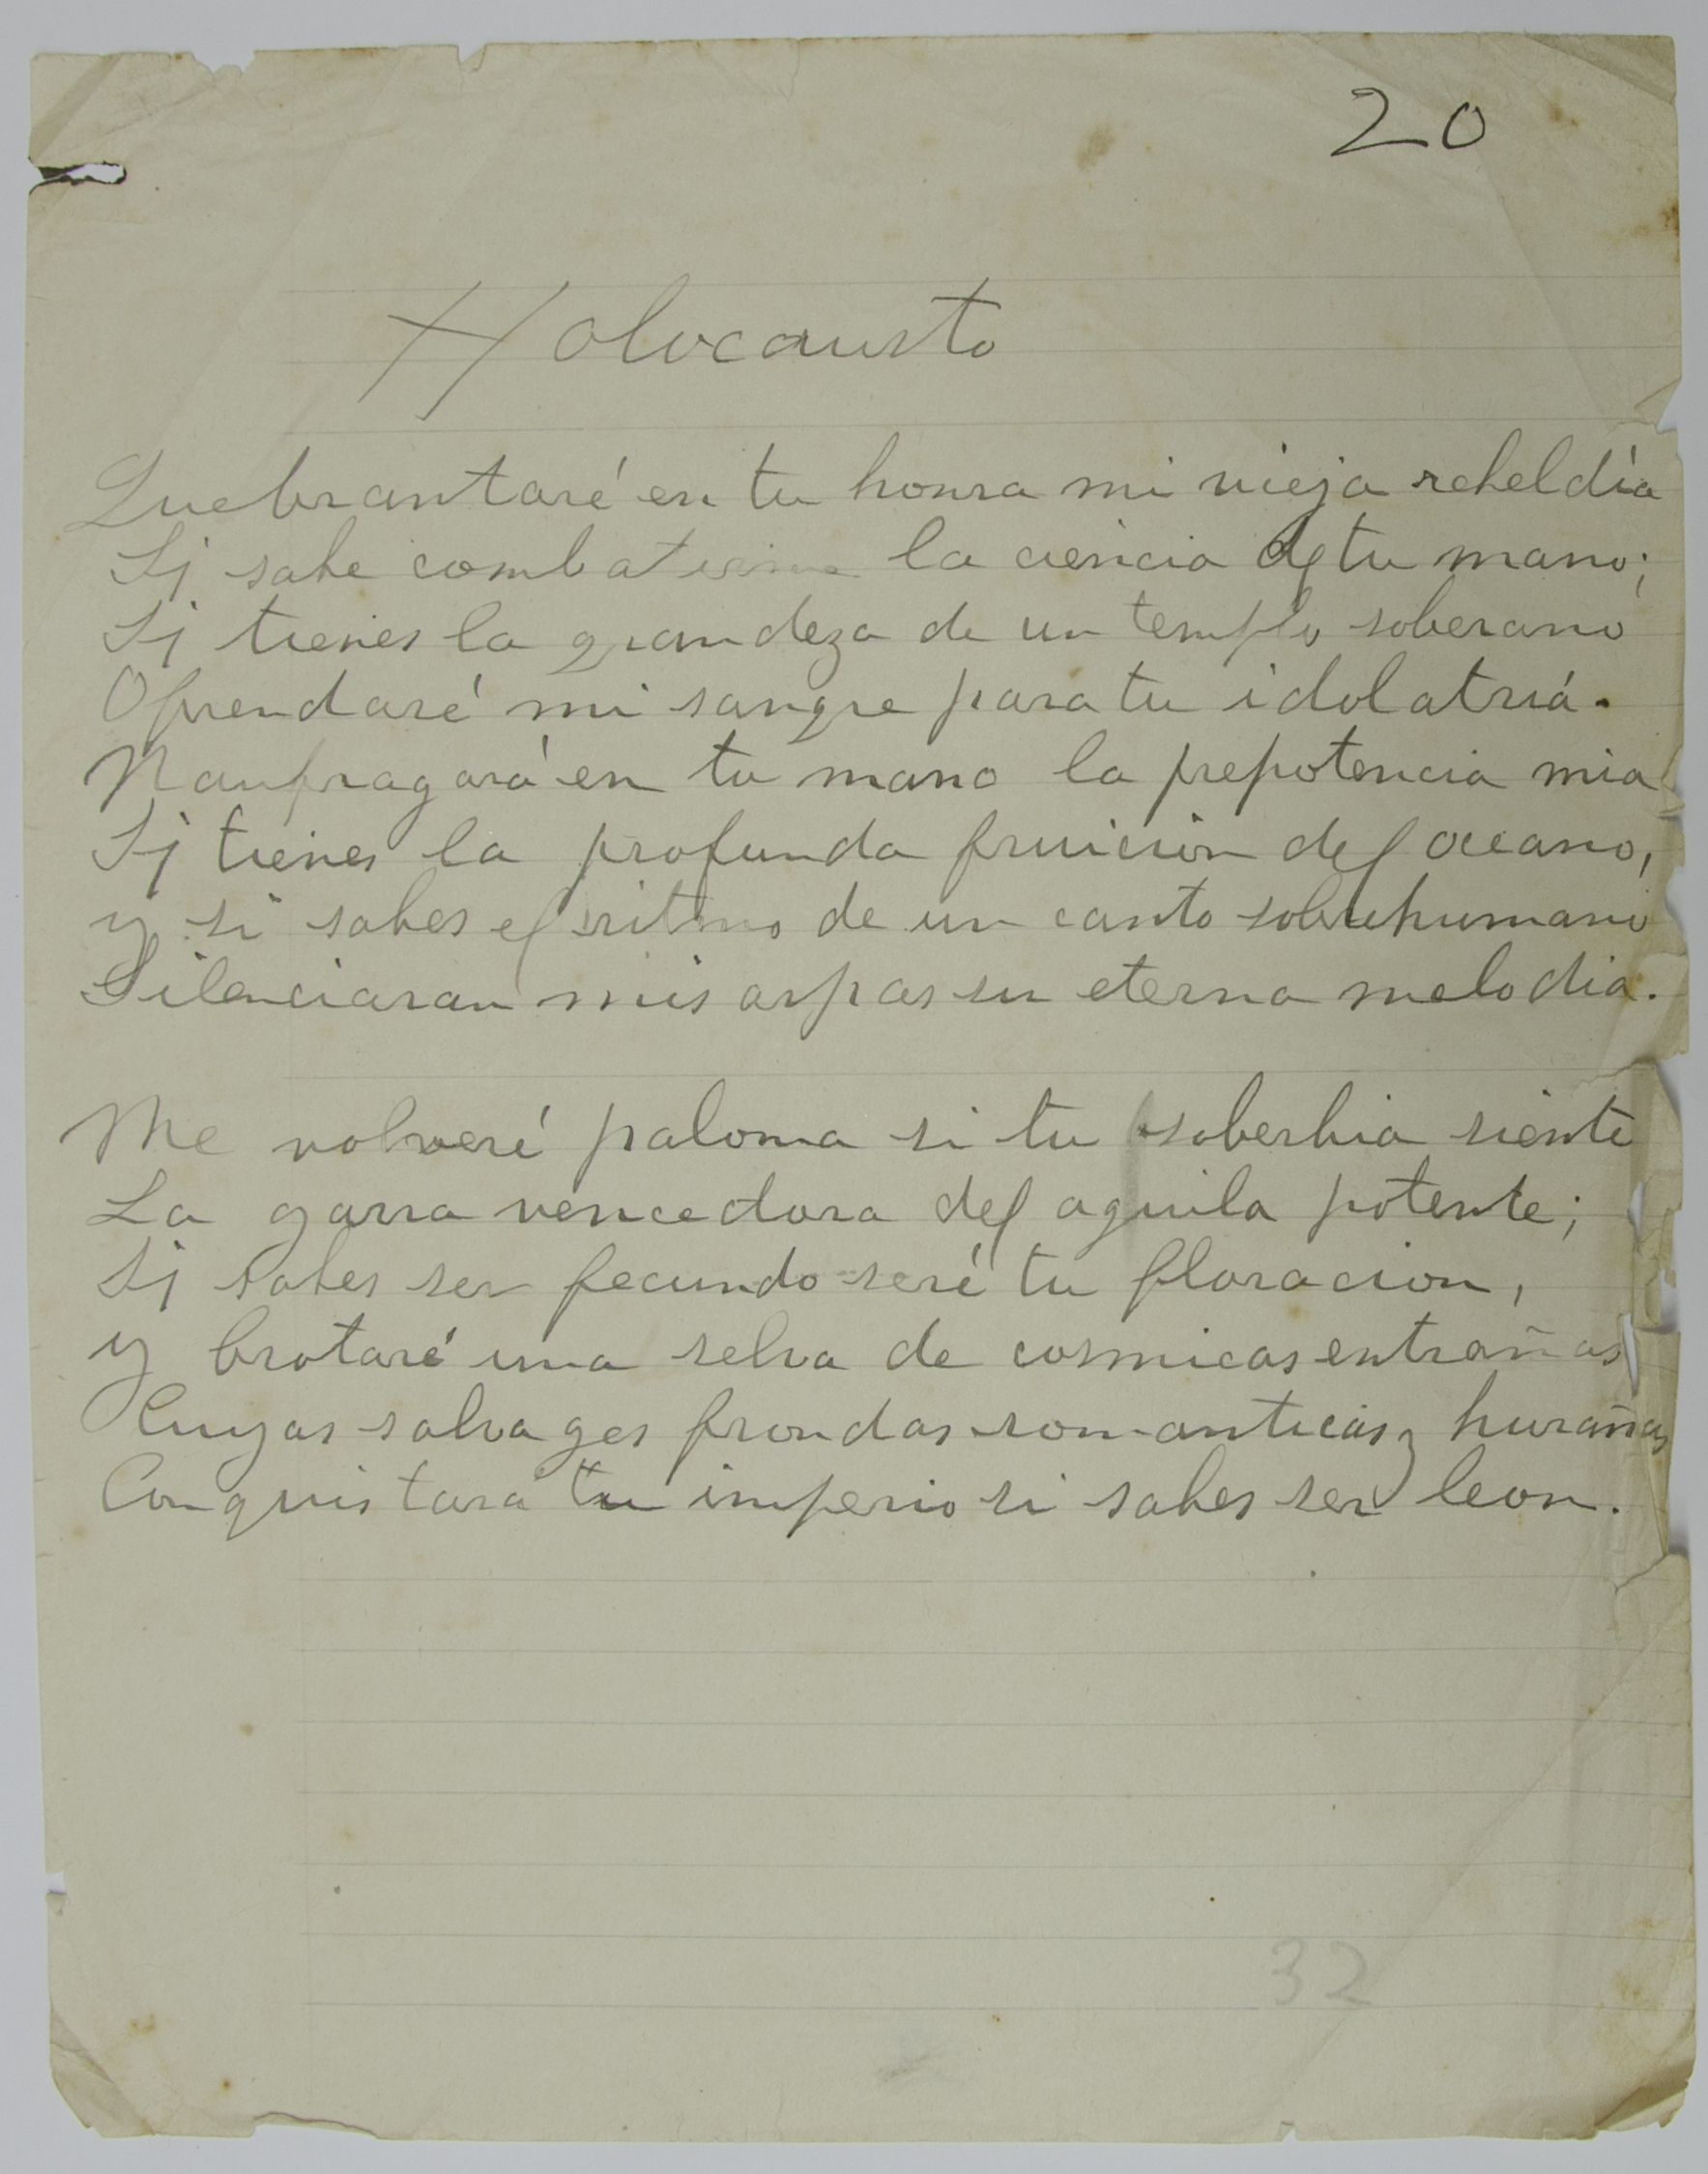 20
Holocausto
Quebrantaré en tu honra mi vieja rebeldía
Si sabe combatirme la ciencia de tu mano;
Si tienes la grandeza de un templo soberano
Ofrendaré mi sangre para tu idolatriá.
Naufragará en tu mano la prepotencia mia
Si tienes la profunda fruicion del oceano,
y si sabes el ritmo de un canto sobrehumano
Silenciaran mis arpas su eterna melodia.
Me volveré paloma si tu soberbia siente
La garra vencedora del aguila potente;
Si sabes ser fecundo seré tu floracion,
y brotaré una selva de cosmicas entrañas
Cuyas salvages frondas romanticas y hurañas
Conquistará tu imperio si sabes ser leon.
32